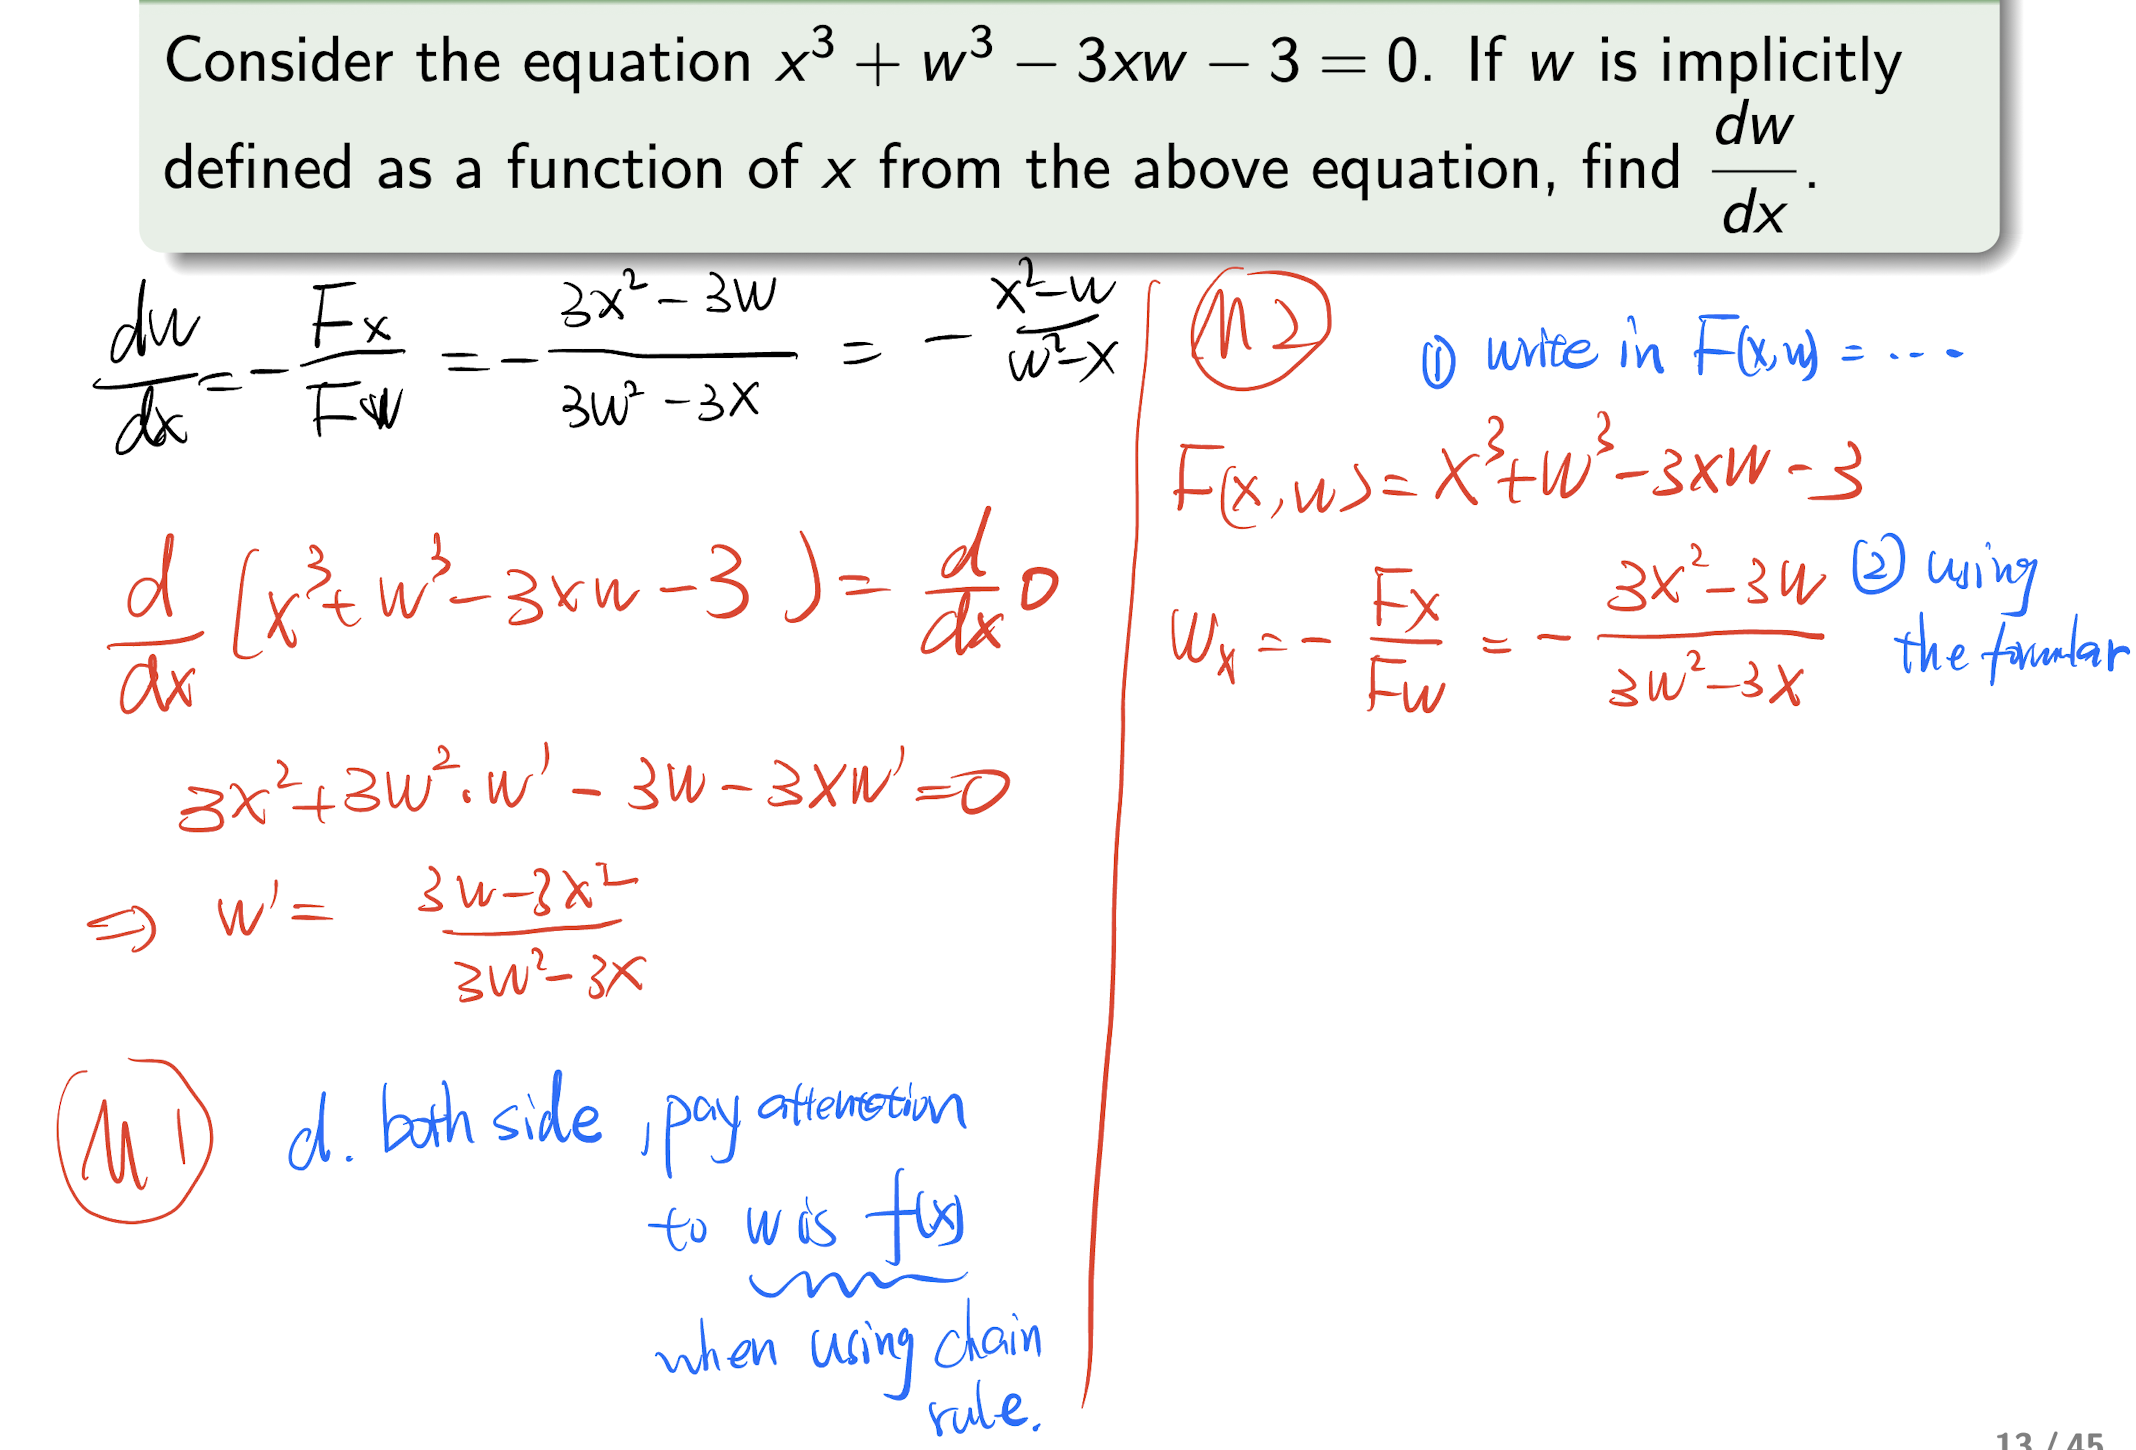 Consider the equation x³ + w³ − 3xw − 3 = 0. If w is implicitly
defined as a function of x from the above equation, find dw/dx.
dw/dx = − Fx/Fw = − (3x² − 3w)/(3w² − 3x) = − (x² − w)/(w² − x)
d/dx (x³ + w³ − 3xw − 3) = d/dx 0
3x² + 3w² · w' − 3w − 3xw' = 0
⇒ w' = (3w − 3x²)/(3w² − 3x)
M1
d. both side, pay attenction
to w is f(x)
when using chain
rule.
M2
① write in F(x,w) = ...
F(x,w) = x³ + w³ − 3xw − 3
Wx = − Fx/Fw = − (3x² − 3w)/(3w² − 3x)
② using
the formular
13 / 45